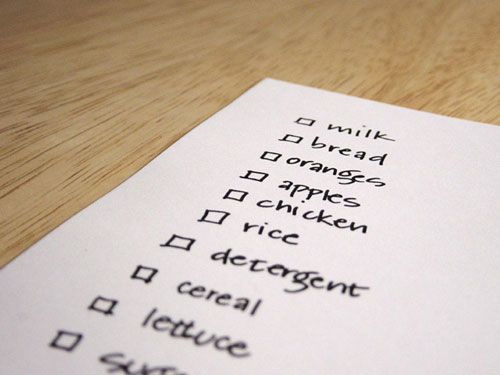 ☐ milk
☐ bread
☐ oranges
☐ apples
☐ chicken
☐ rice
☐ detergent
☐ cereal
☐ lettuce